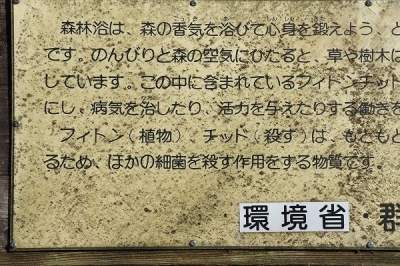 森林浴は、森の香気を浴びて心身を鍛えよう、と
です。のんびりと森の空気にひたると、草や樹木は
しています。この中に含まれているフィトンチッド
にし、病気を治したり、活力を与えたりする働きを
フィトン(植物)、チッド(殺す)は、もともと
るため、ほかの細菌を殺す作用をする物質です。
環境省・群